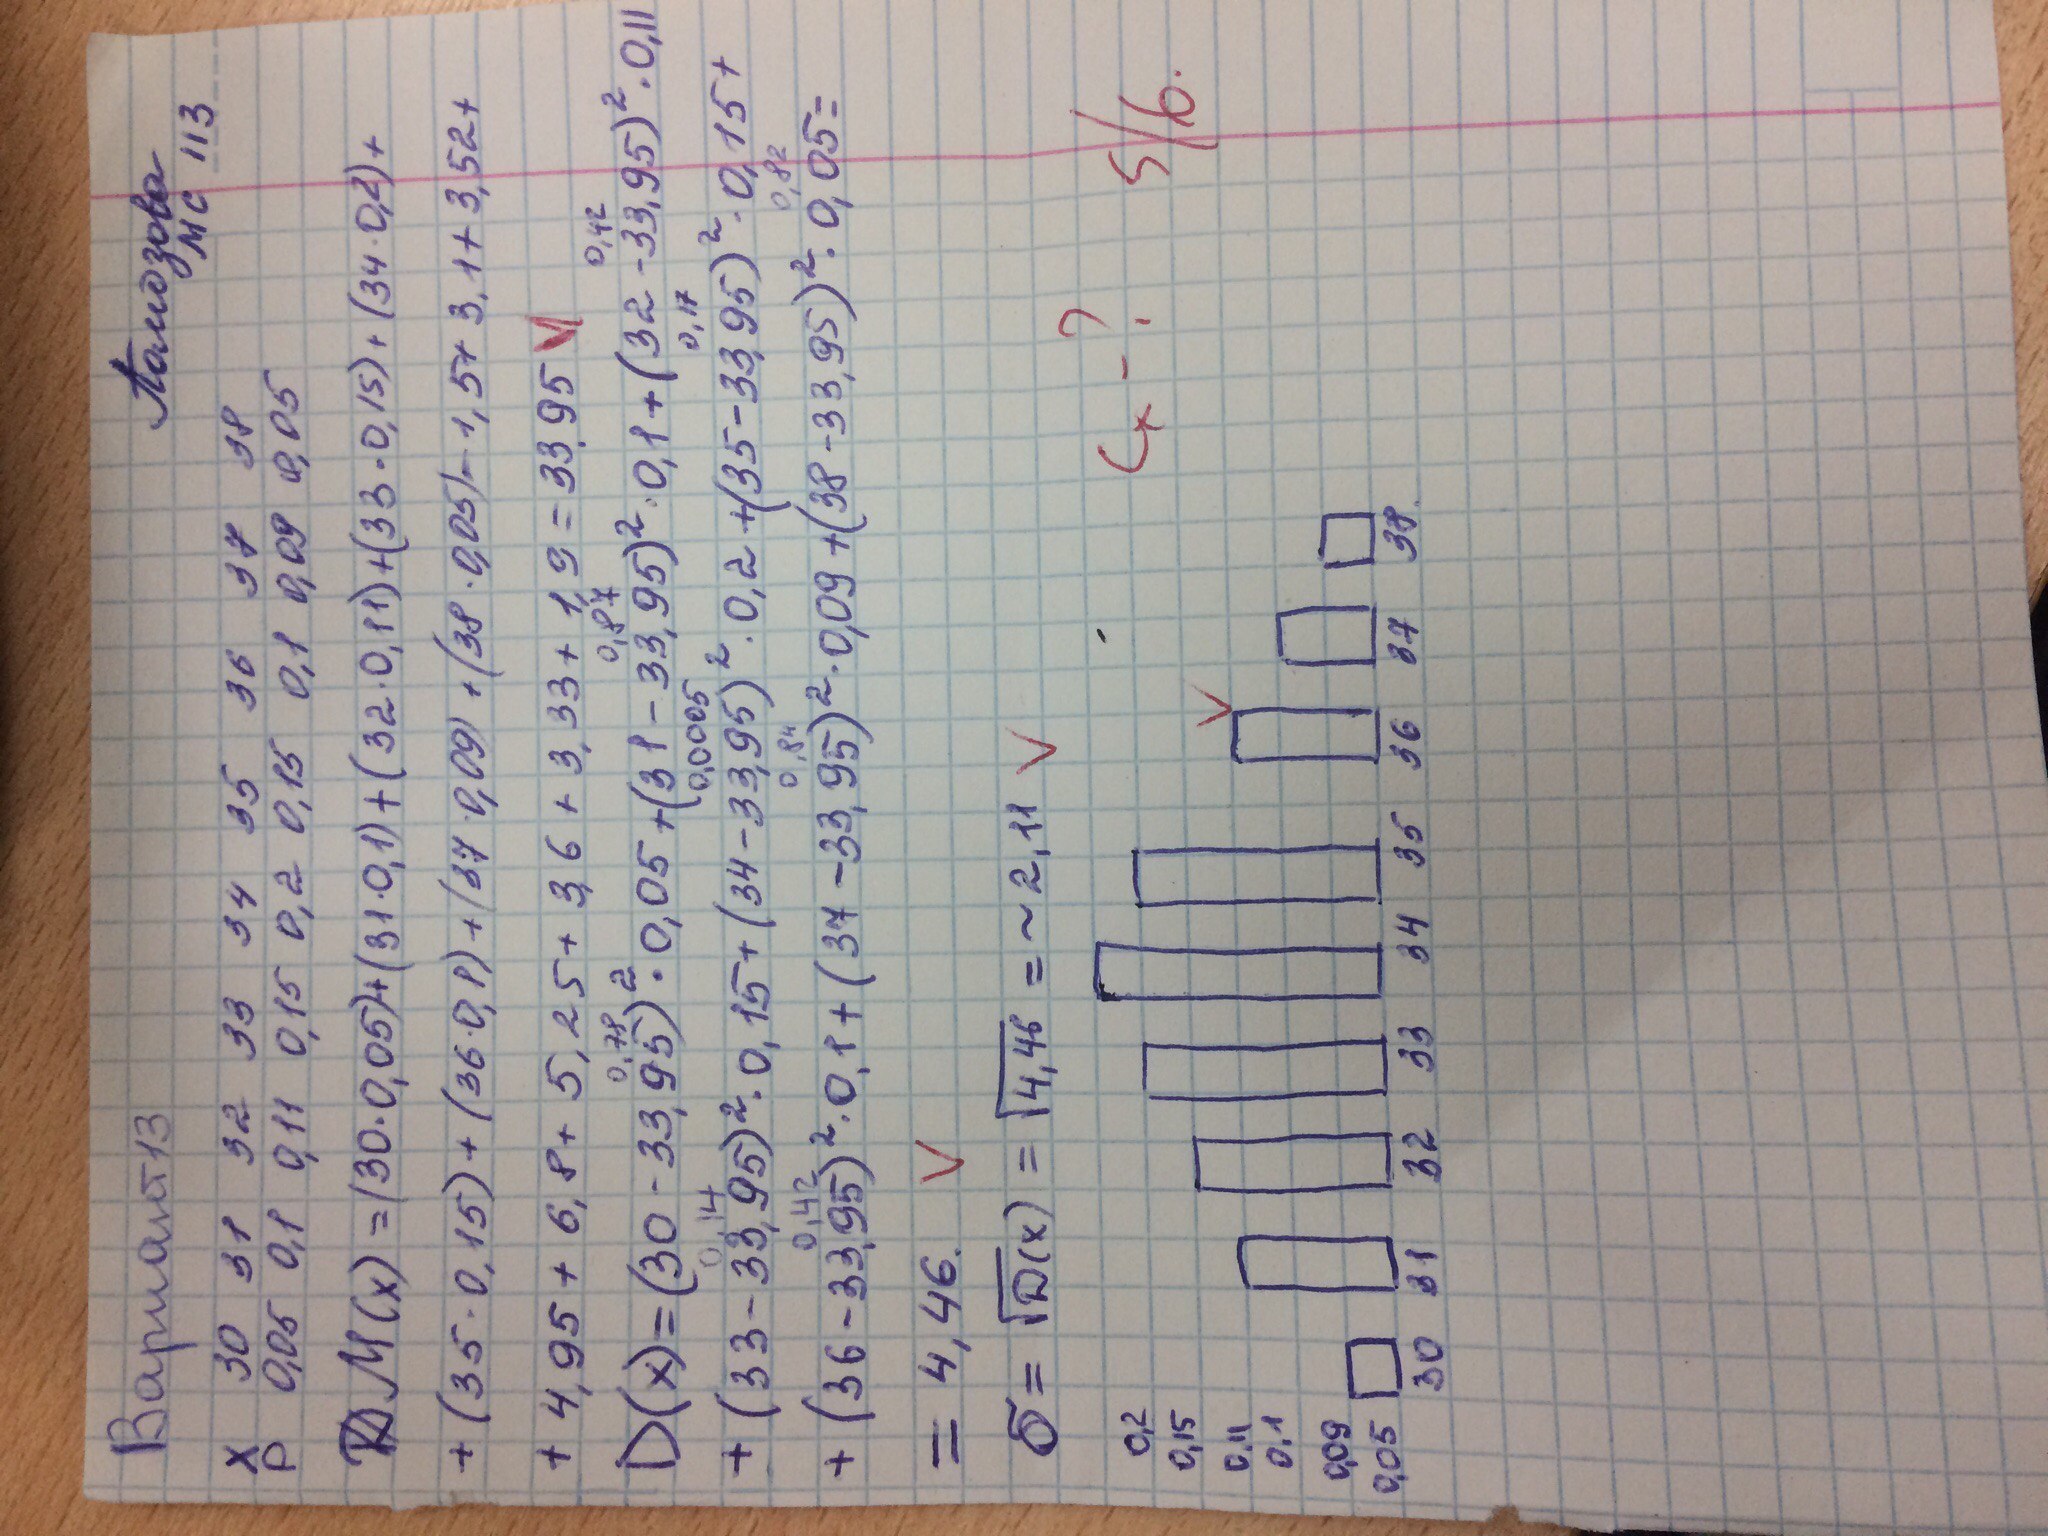 Вариант 13
МС 113
X 30 31 32 33 34 35 36 37 38
P 0,05 0,1 0,11 0,15 0,2 0,15 0,1 0,09 0,05
M(x) = (30·0,05)+(31·0,1)+(32·0,11)+(33·0,15)+(34·0,2)+
+(35·0,15)+(36·0,1)+(37·0,09)+(38·0,05)=1,5+3,1+3,52+
+4,95+6,8+5,25+3,6+3,33+1,9=33,95 V
0,78 0,87 0,42
D(x)=(30-33,95)²·0,05+(31-33,95)²·0,1+(32-33,95)²·0,11
0,14 0,0005 0,17
+(33-33,95)²·0,15+(34-33,95)²·0,2+(35-33,95)²·0,15+
0,42 0,84 0,82
+(36-33,95)²·0,1+(37-33,95)²·0,09+(38-33,95)²·0,05=
= 4,46. V
σ = √D(x) = √4,46 = ~2,11 V
Cx - ? 5/6.
0,2
0,15
0,11
0,1 V
0,09
0,05
30 31 32 33 34 35 36 37 38